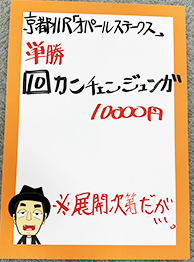 京都11R「オパールステークス」
単勝
⑩カンチェンジュンガ
10000円
※展開次第だが…。